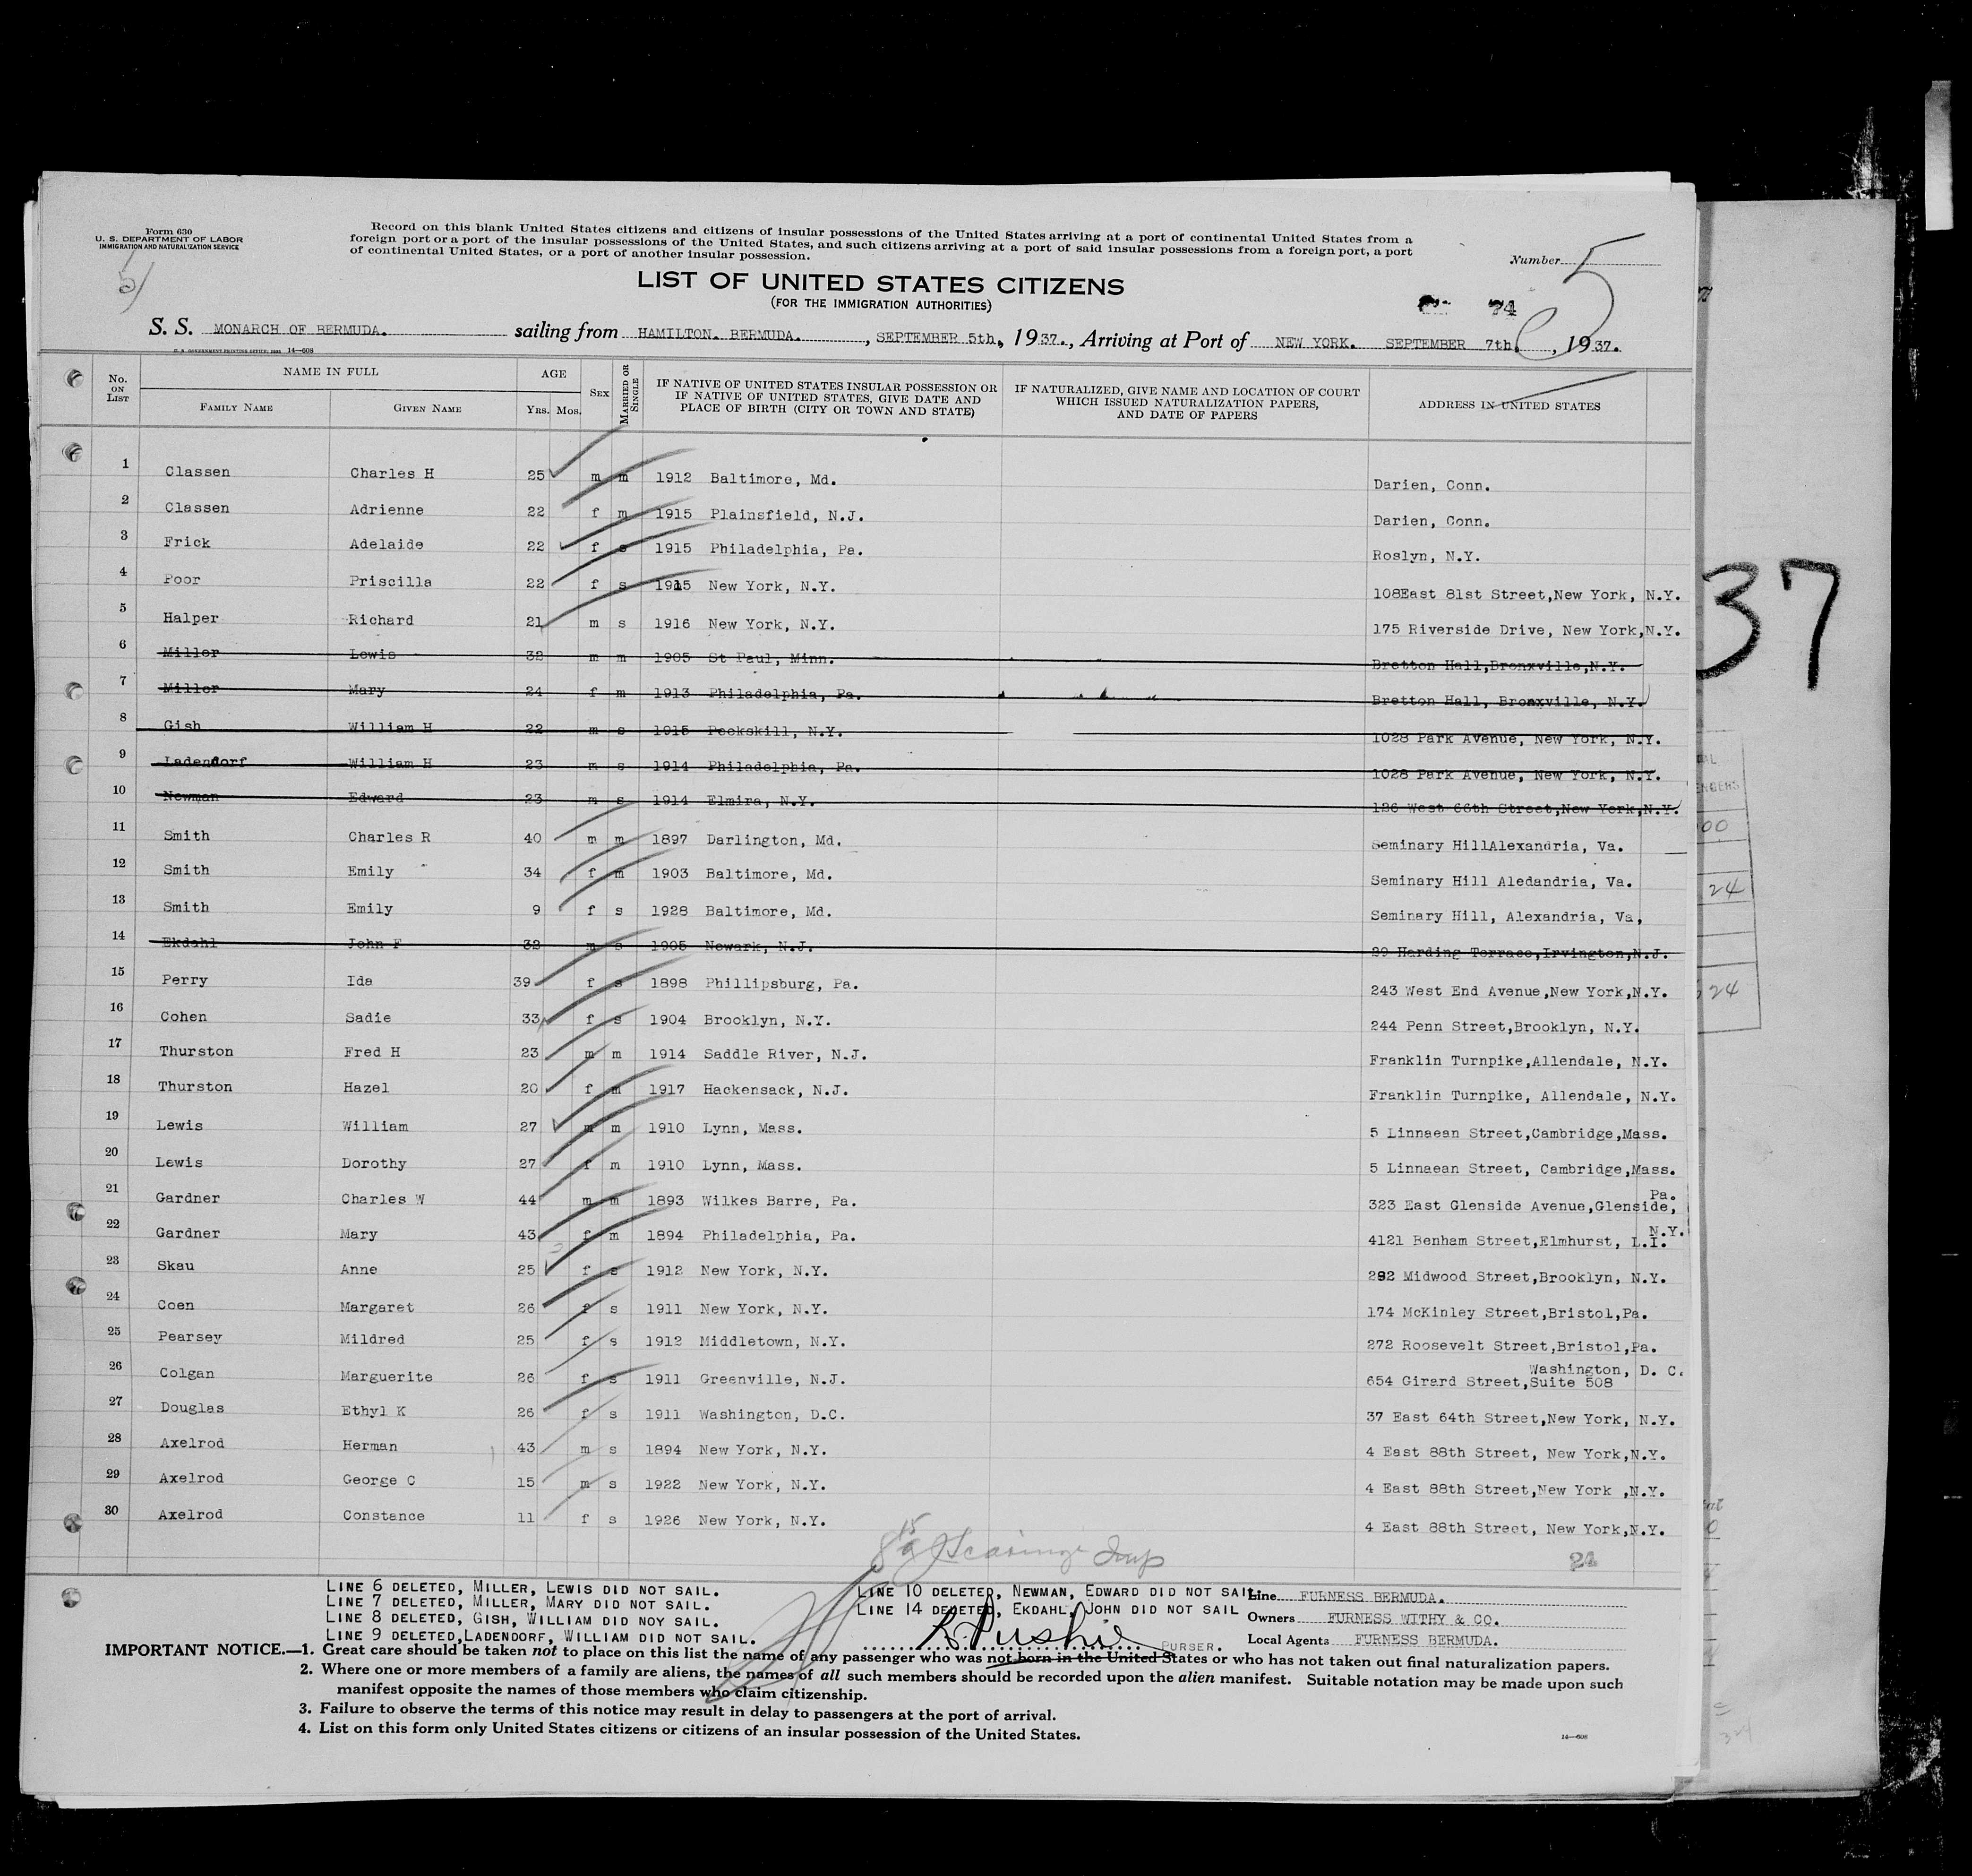 Form 630
U. S. DEPARTMENT OF LABOR
IMMIGRATION AND NATURALIZATION SERVICE
Record on this blank United States citizens and citizens of insular possessions of the United States arriving at a port of continental United States from a
foreign port or a port of the insular possessions of the United States, and such citizens arriving at a port of said insular possessions from a foreign port, a port
of continental United States, or a port of another insular possession.
Number 5
5/
LIST OF UNITED STATES CITIZENS
(FOR THE IMMIGRATION AUTHORITIES)
74
S. S. MONARCH OF BERMUDA. sailing from HAMILTON. BERMUDA., SEPTEMBER 5th., 1937., Arriving at Port of NEW YORK. SEPTEMBER 7th., 1937.
U. S. GOVERNMENT PRINTING OFFICE: 14—608
No. ON LIST NAME IN FULL FAMILY NAME GIVEN NAME AGE YRS. MOS. SEX MARRIED OR SINGLE IF NATIVE OF UNITED STATES INSULAR POSSESSION OR IF NATIVE OF UNITED STATES, GIVE DATE AND PLACE OF BIRTH (CITY OR TOWN AND STATE) IF NATURALIZED, GIVE NAME AND LOCATION OF COURT WHICH ISSUED NATURALIZATION PAPERS, AND DATE OF PAPERS ADDRESS IN UNITED STATES
1 Classen Charles H 25 m m 1912 Baltimore, Md. Darien, Conn.
2 Classen Adrienne 22 f m 1915 Plainsfield, N.J. Darien, Conn.
3 Frick Adelaide 22 f s 1915 Philadelphia, Pa. Roslyn, N.Y.
4 Poor Priscilla 22 f s 1915 New York, N.Y. 108East 81st Street,New York, N.Y.
5 Halper Richard 21 m s 1916 New York, N.Y. 175 Riverside Drive, New York,N.Y.
6 Miller Lewis 32 m m 1905 St Paul, Minn. Bretton Hall,Bronxville,N.Y.
7 Miller Mary 24 f m 1913 Philadelphia, Pa. Bretton Hall, Bronxville, N.Y.
8 Gish William H 22 m s 1915 Peekskill, N.Y. 1028 Park Avenue, New York, N.Y.
9 Ladendorf William H 23 m s 1914 Philadelphia, Pa. 1028 Park Avenue, New York, N.Y.
10 Newman Edward 23 m s 1914 Elmira, N.Y. 126 West 66th Street,New York,N.Y.
11 Smith Charles R 40 m m 1897 Darlington, Md. Seminary HillAlexandria, Va.
12 Smith Emily 34 f m 1903 Baltimore, Md. Seminary Hill Aledandria, Va.
13 Smith Emily 9 f s 1928 Baltimore, Md. Seminary Hill, Alexandria, Va,
14 Ekdahl John F 32 m s 1905 Newark, N.J. 29 Harding Terrace,Irvington,N.J.
15 Perry Ida 39 f s 1898 Phillipsburg, Pa. 243 West End Avenue,New York,N.Y.
16 Cohen Sadie 33 f s 1904 Brooklyn, N.Y. 244 Penn Street,Brooklyn, N.Y.
17 Thurston Fred H 23 m m 1914 Saddle River, N.J. Franklin Turnpike,Allendale, N.Y.
18 Thurston Hazel 20 f m 1917 Hackensack, N.J. Franklin Turnpike, Allendale, N.Y.
19 Lewis William 27 m m 1910 Lynn, Mass. 5 Linnaean Street,Cambridge,Mass.
20 Lewis Dorothy 27 f m 1910 Lynn, Mass. 5 Linnaean Street, Cambridge,Mass.
21 Gardner Charles W 44 m m 1893 Wilkes Barre, Pa. 323 East Glenside Avenue,Glenside, Pa.
22 Gardner Mary 43 f m 1894 Philadelphia, Pa. 4121 Benham Street,Elmhurst, L.I. N.Y.
23 Skau Anne 25 f s 1912 New York, N.Y. 292 Midwood Street,Brooklyn, N.Y.
24 Coen Margaret 26 f s 1911 New York, N.Y. 174 McKinley Street,Bristol,Pa.
25 Pearsey Mildred 25 f s 1912 Middletown, N.Y. 272 Roosevelt Street,Bristol,Pa.
26 Colgan Marguerite 26 f s 1911 Greenville, N.J. 654 Girard Street,Suite 508 Washington, D. C.
27 Douglas Ethyl K 26 f s 1911 Washington, D.C. 37 East 64th Street,New York, N.Y.
28 Axelrod Herman 43 m s 1894 New York, N.Y. 4 East 88th Street, New York,N.Y.
29 Axelrod George C 15 m s 1922 New York, N.Y. 4 East 88th Street,New York ,N.Y.
30 Axelrod Constance 11 f s 1926 New York, N.Y. 4 East 88th Street, New York,N.Y.
24
LINE 6 DELETED, MILLER, LEWIS DID NOT SAIL.
LINE 7 DELETED, MILLER, MARY DID NOT SAIL.
LINE 8 DELETED, GISH, WILLIAM DID NOY SAIL.
LINE 9 DELETED,LADENDORF, WILLIAM DID NOT SAIL.
LINE 10 DELETED, NEWMAN, EDWARD DID NOT SAIL
LINE 14 DELETED, EKDAHL, JOHN DID NOT SAIL
PURSER.
Line FURNESS BERMUDA.
Owners FURNESS WITHY & CO.
Local Agents FURNESS BERMUDA.
IMPORTANT NOTICE.—1. Great care should be taken not to place on this list the name of any passenger who was not born in the United States or who has not taken out final naturalization papers.
2. Where one or more members of a family are aliens, the names of all such members should be recorded upon the alien manifest. Suitable notation may be made upon such
manifest opposite the names of those members who claim citizenship.
3. Failure to observe the terms of this notice may result in delay to passengers at the port of arrival.
4. List on this form only United States citizens or citizens of an insular possession of the United States.
14—608
37
00
24
24